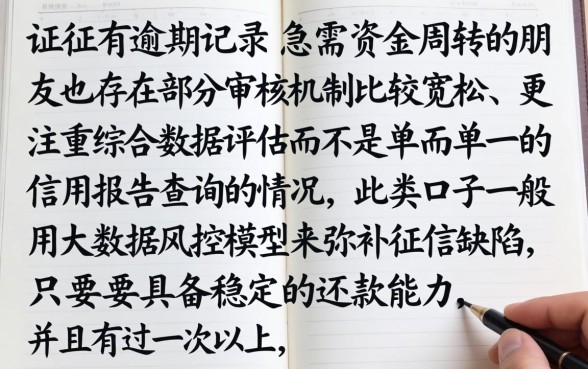 证征有逾期记录 急需资金周转的朋
友也存在部分审核机制比较宽松、更
注重综合数据评估而不是单而单一的
信用报告查询的情况，此类口子一般
用大数据风控模型来弥补征信缺陷，
只要要具备稳定的还款能力，
并且有过一次以上，